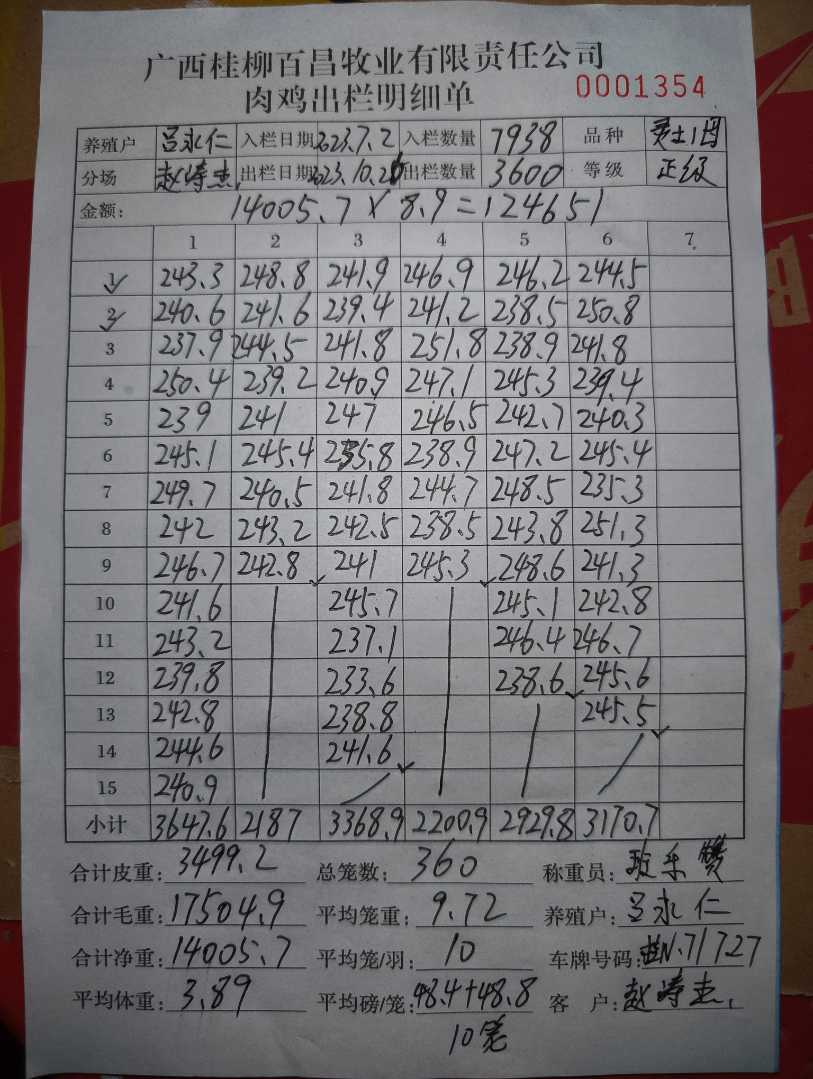 广西桂柳百昌牧业有限责任公司
肉鸡出栏明细单 0001354
养殖户 吕永仁 入栏日期 2023.7.2 入栏数量 7938 品种 灵土1号
分场 赵涛杰 出栏日期 2023.10.26 出栏数量 3600 等级 正级
金额: 14005.7 × 8.9 = 124651
1 2 3 4 5 6 7
1 243.3 248.8 241.9 246.9 246.2 244.5
2 240.6 241.6 239.4 241.2 238.5 250.8
3 237.9 244.5 241.8 251.8 238.9 241.8
4 250.4 239.2 240.9 247.1 245.3 239.4
5 239 241 247 246.5 242.7 240.3
6 245.1 245.4 235.8 238.9 247.2 245.4
7 249.7 240.5 241.8 244.7 248.5 235.3
8 242 243.2 242.5 238.5 243.8 251.3
9 246.7 242.8 241 245.3 248.6 241.3
10 241.6 245.7 245.1 242.8
11 243.2 237.1 246.4 246.7
12 239.8 233.6 238.6 245.6
13 242.8 238.8 245.5
14 244.6 241.6
15 240.9
小计 3647.6 2187 3368.9 2200.9 2929.8 3170.7
合计皮重: 3499.2 总笼数: 360 称重员:
合计毛重: 17504.9 平均笼重: 9.72 养殖户: 吕永仁
合计净重: 14005.7 平均笼/羽: 10 车牌号码: 桂N·71727
平均体重: 3.89 平均磅/笼: 48.4+48.8 客 户: 赵涛杰
10笼